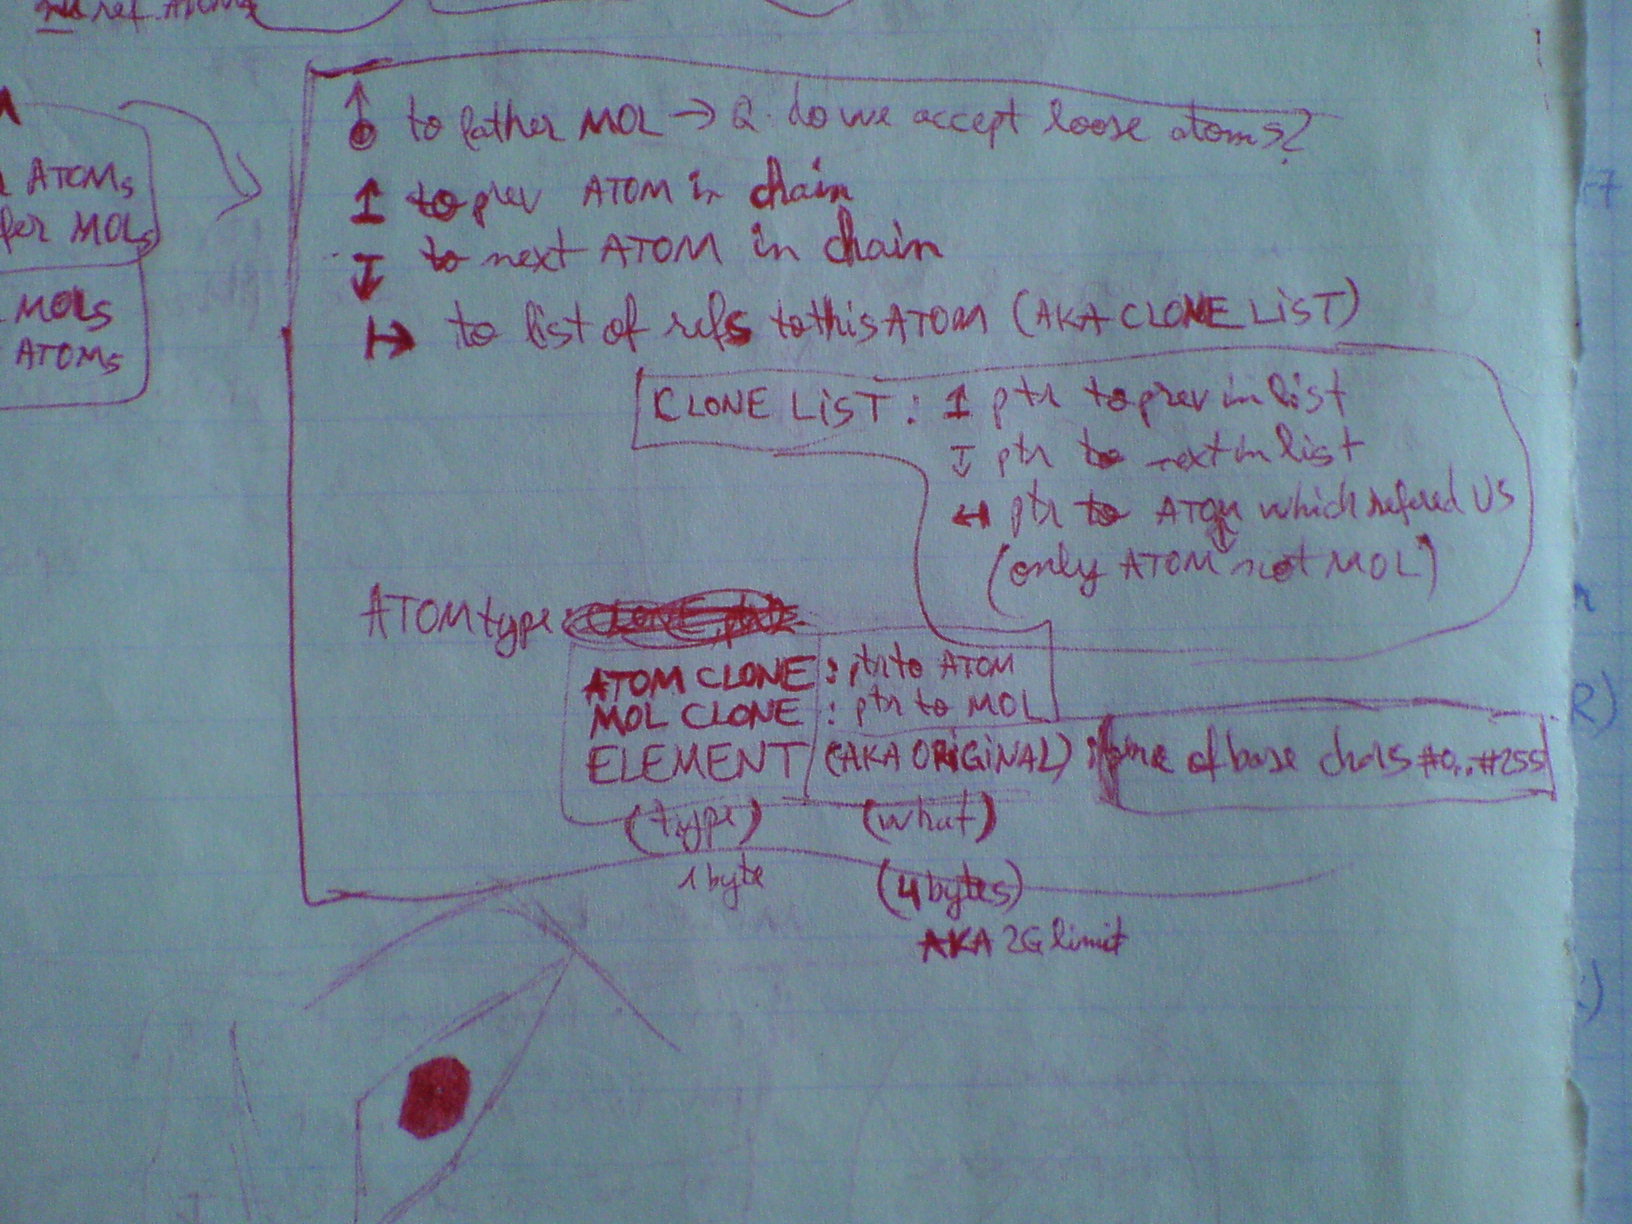 ref. ATOMs
to father MOL → Q. do we accept loose atoms?
ATOMs
to prev ATOM in chain
for MOLs
to next ATOM in chain
MOLs
to list of refs to this ATOM (AKA CLONE LIST)
ATOMs
CLONE LIST: ptr to prev in list
ptr to next in list
ptr to ATOM which refered US
(only ATOM not MOL)
ATOM type:
ATOM CLONE: ptr to ATOM
MOL CLONE: ptr to MOL
ELEMENT (AKA ORIGINAL): of base chars #0..#255
(type) (what)
1 byte (4 bytes)
AKA 2G limit